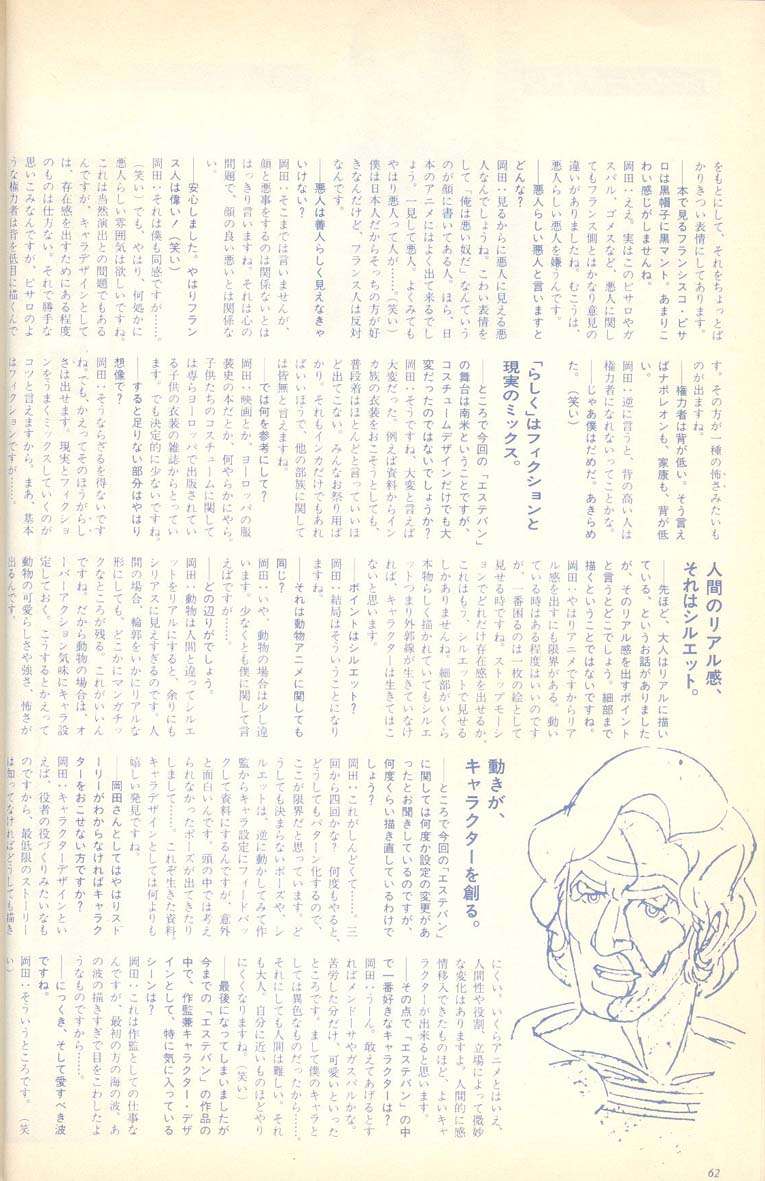 をもとにして、それをちょっとば
かりきつい表情にしてあります。
——本で見るフランシスコ・ピサ
ロは黒帽子に黒マント。あまりこ
わい感じがしませんね。
岡田：ええ。実はこのピサロやガ
スパル・ゴメスなど、悪人に関し
てもフランス側とはかなり意見の
違いがありましたね。むこうは、
悪人らしい悪人を嫌うんです。
——悪人らしい悪人と言いますと
どんな？
岡田：見るからに悪人に見える悪
人なんでしょうね。こわい表情を
して「俺は悪い奴だ」なんていう
のが顔に書いてある人。ほら、日
本のアニメにはよく出て来るでし
ょう。一見して悪人、よくみても
やはり悪人って人が……。（笑い）
僕は日本人だからそっちの方が好
きなんだけど、フランス人は反対
なんです。
——悪人は善人らしく見えなきゃ
いけない？
岡田：そこまでは言いませんが、
顔と悪事をするのは関係ないとは
はっきり言いますね。それは心の
問題で、顔の良い悪いとは関係な
い。
——安心しました。やはりフラン
ス人は偉い！（笑い）
岡田：それは僕も同感ですが……
（笑い）でも、やはり、何処かに
悪人らしい雰囲気は欲しいですね。
これは当然演出との問題でもある
んですが、キャラデザインとして
は、存在感を出すためにある程度
のものは仕方ない。それで勝手な
思いこみなんですが、ピサロのよ
うな権力者は背を低目に描くんで
す。その方が一種の怖さみたいも
のが出ますね。
——権力者は背が低い。そう言え
ばナポレオンも、家康も、背が低
い。
岡田：逆に言うと、背の高い人は
権力者になれないってことかな。
——じゃあ僕はだめだ。あきらめ
た。（笑い）
「らしく」はフィクションと
現実のミックス。
——ところで今回の「エステバン」
の舞台は南米ということですが、
コスチュームデザインだけでも大
変だったのではないでしょうか？
岡田：そうですね、大変と言えば
大変だった。例えば資料からイン
カ族の衣装をおこそうとしても、
普段着はほとんどと言っていいほ
ど出てこない。みんなお祭り用ば
かり。それもインカだけでもあれ
ばいいほうで、他の部族に関して
は皆無と言えますね。
——では何を参考にして？
岡田：映画とか、ヨーロッパの服
装史の本だとか、何やらかにやら。
子供たちのコスチュームに関して
は専らヨーロッパで出版されてい
る子供の衣装の雑誌からとってい
ます。でも決定的に少ないですね。
——すると足りない部分はやはり
想像で？
岡田：そうならざるを得ないです
ね。でも、かえってそのほうがらし
さは出せます。現実とフィクショ
ンをうまくミックスしていくのが
コツと言えますから。まあ、基本
はフィクションですが……。
人間のリアル感、
それはシルエット。
先ほど、大人はリアルに描い
ている、というお話がありました
が、そのリアル感を出すポイント
と言うとどこでしょう。細部まで
描くということではないですね。
岡田：やはりアニメですからリア
ル感を出すにも限界がある。動い
ている時はある程度はいいのです
が、一番困るのは一枚の絵として
見せる時ですね。ストップモーシ
ョンでどれだけ存在感を出せるか。
これはもう、シルエットで見せる
しかありませんね。細部がいくら
本物らしく描かれていてもシルエ
ットつまり外郭線が生きていなけ
れば、キャラクターは生きてはこ
ないと思います。
——ポイントはシルエット？
岡田：結局はそういうことになり
ますね。
——それは動物アニメに関しても
同じ？
岡田：いや、動物の場合は少し違
います。少なくとも僕に関して言
えばですが……
——どの辺りがでしょう。
岡田：動物は人間と違ってシルエ
ットをリアルにすると、余りにも
シリアスに見えすぎるのです。人
間の場合、輪郭をいかにリアルな
形にしても、どこかにマンガチッ
クなところが残る。これがいいん
ですね。だから動物の場合は、オ
ーバーアクション気味にキャラ設
定しておく。こうするとかえって
動物の可愛らしさや強さ、怖さが
出るんです。
動きが、
キャラクターを創る。
——ところで今回の「エステバン」
に関しては何度か設定の変更があ
ったとお聞きしているのですが、
何度くらい描き直しているわけで
しょう？
岡田：これがしんどくて……。三
回から四回かな？　何度もやると、
どうしてもパターン化するので、
ここが限界だと思っています。ど
うしても決まらないポーズや、シ
ルエットは、逆に動かしてみて作
監からキャラ設定にフィードバッ
クして資料にするんですが、意外
と面白いんです。頭の中では考え
られなかったポーズが出てきたり
しまして……。これぞ生きた資料。
キャラデザインとしては何よりも
嬉しい発見ですね。
——岡田さんとしてはやはりスト
ーリーがわからなければキャラク
ターをおこせない方ですか？
岡田：キャラクターデザインとい
えば、役者の役づくりみたいなも
のですから、最低限のストーリー
は知ってなければどうしても描き
にくい。いくらアニメとはいえ、
人間性や役割、立場によって微妙
な変化はありますよ。人間的に感
情移入できたものほど、よいキャ
ラクターが出来ると思います。
——その点で「エステバン」の中
で一番好きなキャラクターは？
岡田：うーん。敢えてあげるとす
ればメンドーサやガスパルかな。
苦労した分だけ、可愛いといった
ところです。まして僕のキャラと
しては異色なものだったから……。
それにしても人間は難しい。それ
も大人、自分に近いものほどやり
にくくなりますね。（笑い）
——最後になってしまいましたが
今までの「エステバン」の作品の
中で、作監兼キャラクター・デザ
インとして、特に気に入っている
シーンは？
岡田：これは作監としての仕事な
んですが、最初の方の海の波、あ
の波の描きすぎで目をこわしたよ
うなものですから……。
——にっくき、そして愛すべき波
ですね。
岡田：そういうところです。（笑
い）
62